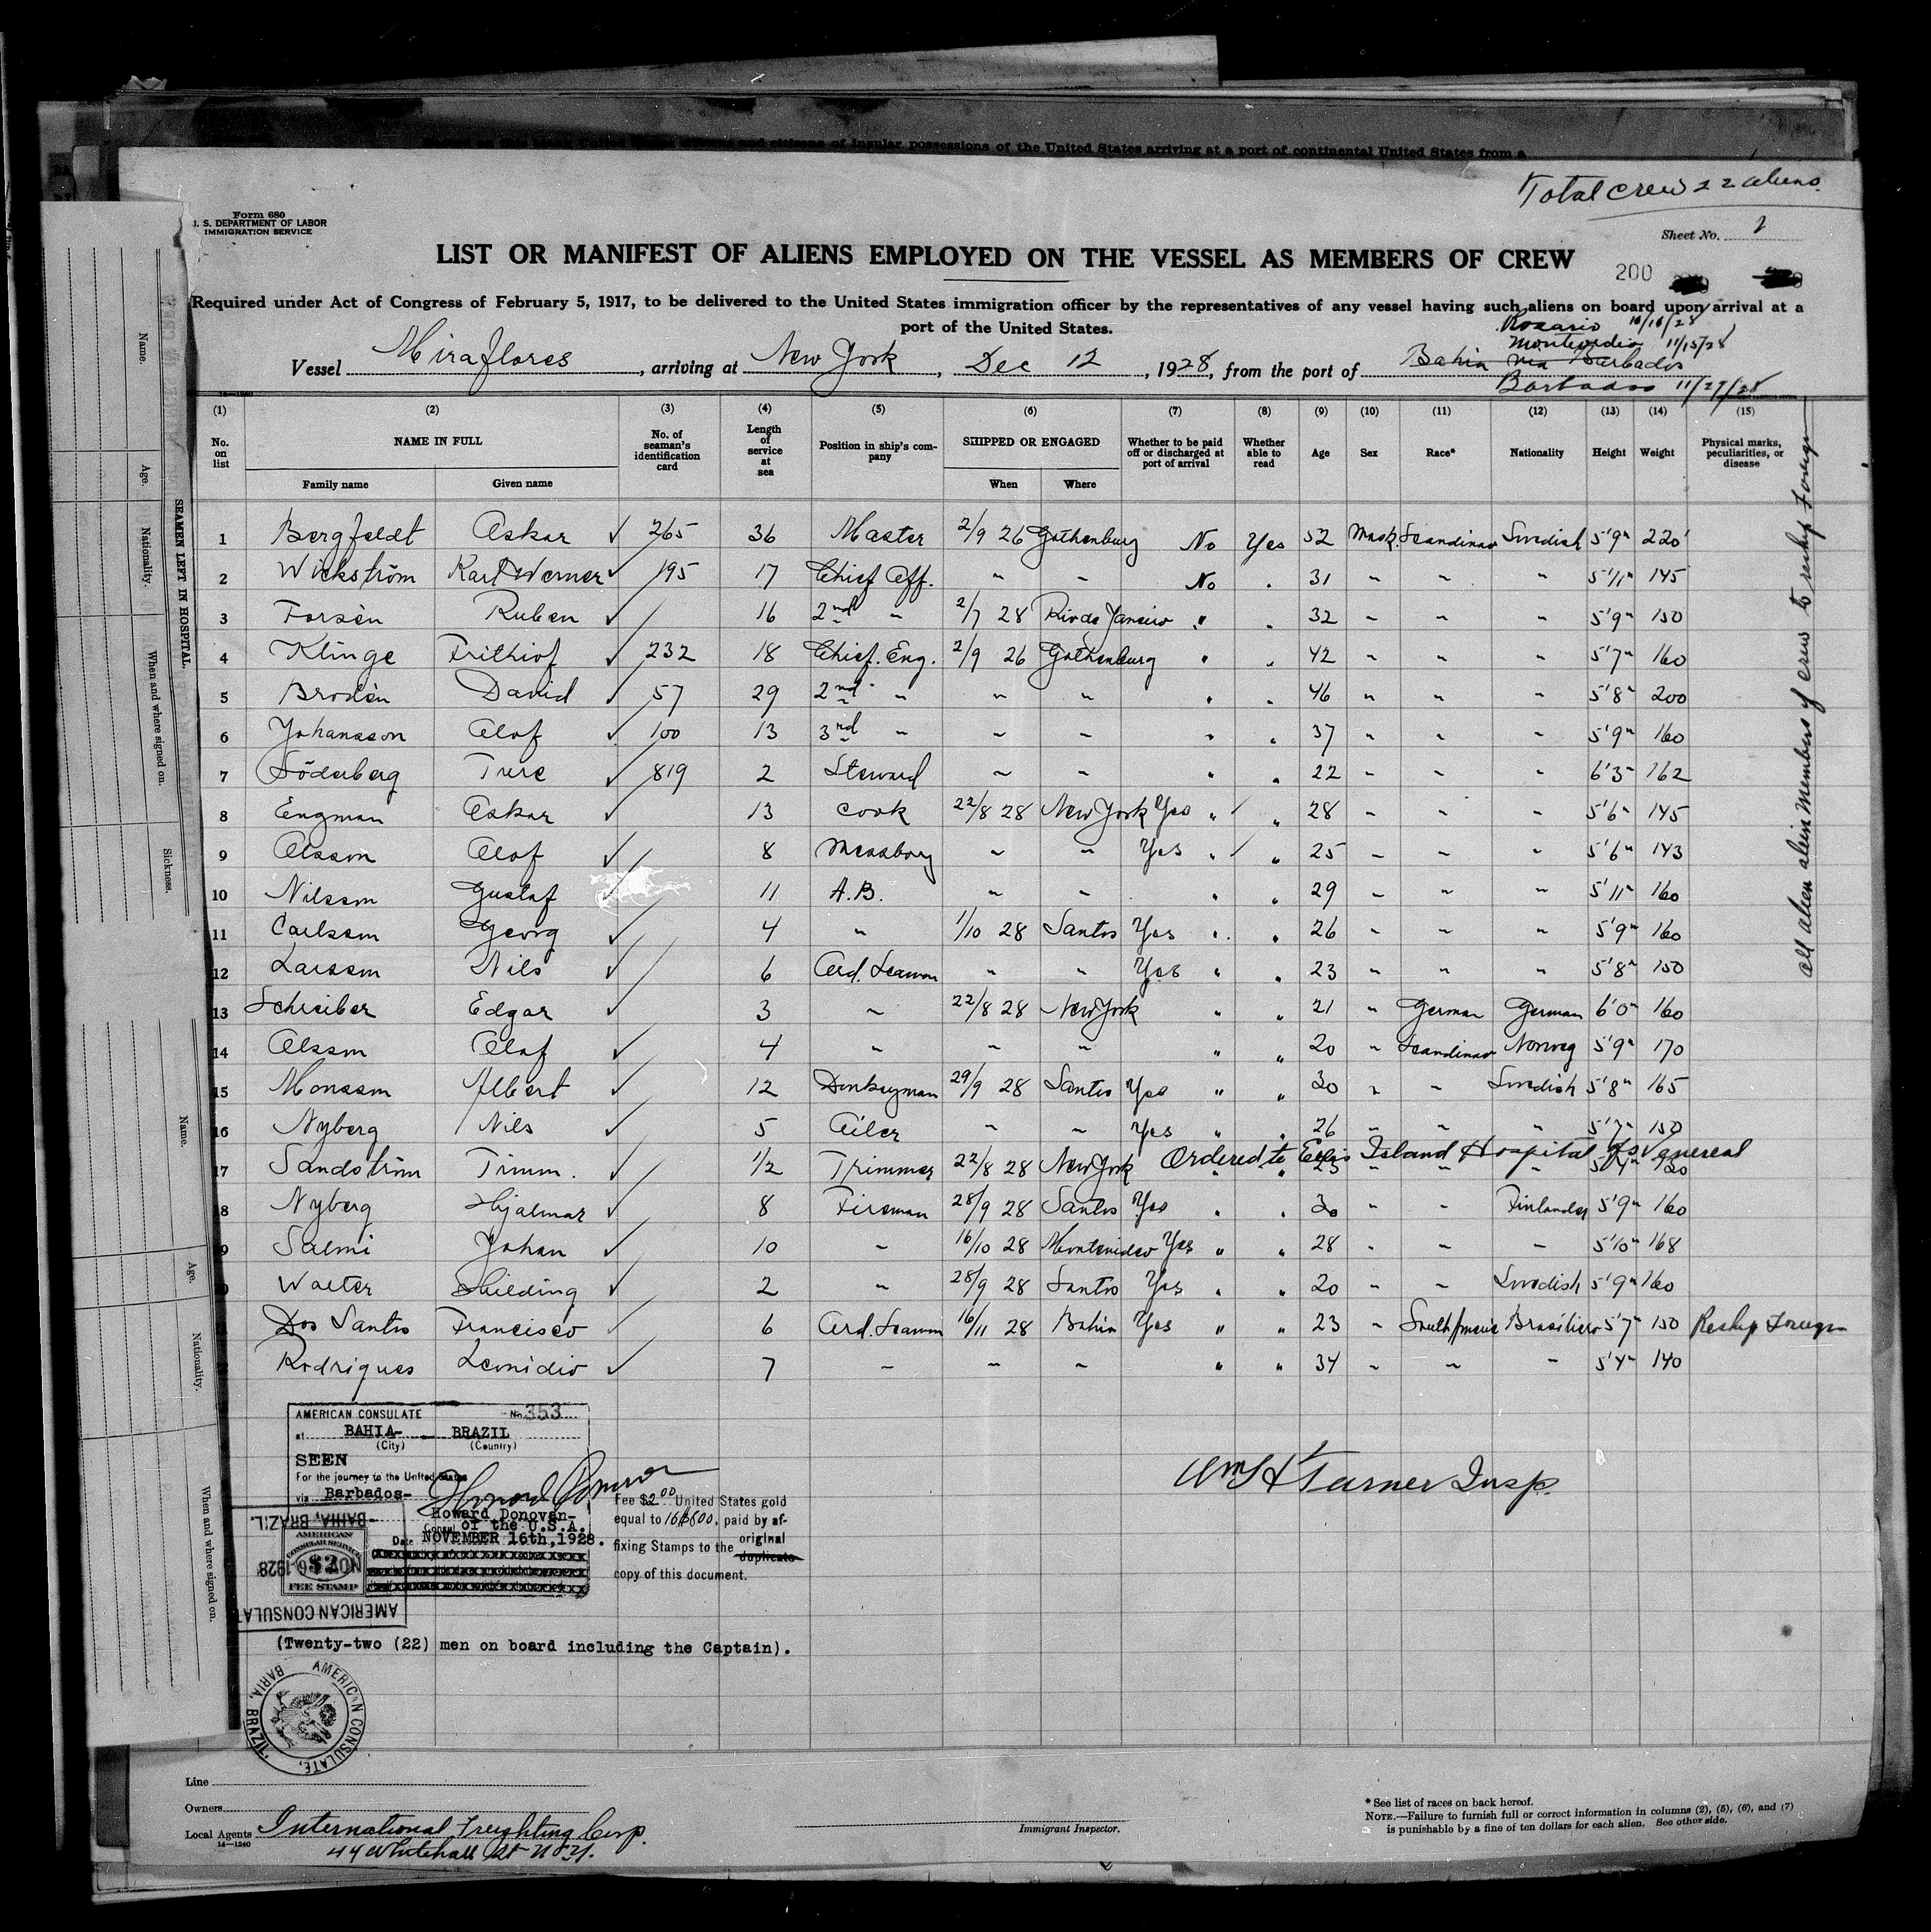 and citizens of insular possessions of the United States arriving at a port of continental United States from a
Total crew 22 aliens.
Form 680
U. S. DEPARTMENT OF LABOR
IMMIGRATION SERVICE
Sheet No. 1
LIST OR MANIFEST OF ALIENS EMPLOYED ON THE VESSEL AS MEMBERS OF CREW
200
Required under Act of Congress of February 5, 1917, to be delivered to the United States immigration officer by the representatives of any vessel having such aliens on board upon arrival at a
port of the United States.
Rosario 10/16/28
Montevideo 11/15/28
Vessel Miraflores, arriving at New York, Dec 12, 1928, from the port of Bahia via Barbados
Barbados 11/27/28
(1) (2) (3) (4) (5) (6) (7) (8) (9) (10) (11) (12) (13) (14) (15)
No. on list NAME IN FULL Family name Given name No. of seaman's identification card Length of service at sea Position in ship's company SHIPPED OR ENGAGED When Where Whether to be paid off or discharged at port of arrival Whether able to read Age Sex Race* Nationality Height Weight Physical marks, peculiarities, or disease
1 Bergfeldt Oskar ✓ 265 36 Master 2/9 26 Gothenburg No Yes 52 Mask. Scandinav Swedish 5'9" 220
2 Wickström Karl Werner ✓ 195 17 Chief Off. " " No " 31 " " " 5'11" 145
3 Forsèn Ruben ✓ 16 2nd " 2/7 28 Rio de Janeiro " " 32 " " " 5'9" 150
4 Klinge Frithiof ✓ 232 18 Chief. Eng. 2/9 26 Gothenburg " " 42 " " " 5'7" 160
5 Brodèn David ✓ 57 29 2nd " " " " " 46 " " " 5'8" 200
6 Johansson Olof ✓ 100 13 3rd " " " " " 37 " " " 5'9" 160
7 Söderberg Ture ✓ 819 2 Steward " " " " 22 " " " 6'3" 162
8 Engman Oskar ✓ 13 Cook 22/8 28 New York Yes " " 28 " " " 5'6" 145
9 Olsson Olof ✓ 8 Messboy " " Yes " " 25 " " " 5'6" 143
10 Nilsson Gustaf ✓ 11 A.B. " " " " 29 " " " 5'11" 160
11 Carlsson Georg ✓ 4 " 1/10 28 Santos Yes " " 26 " " " 5'9" 160
12 Larsson Nils ✓ 6 Ord. Seaman " " Yes " " 23 " " " 5'8" 150
13 Schreiber Edgar ✓ 3 " 22/8 28 New York " " 21 " German German 6'0" 160
14 Olsson Olof ✓ 4 " " " " " 20 " Scandinav Norweg 5'9" 170
15 Monsson Albert ✓ 12 Donkeyman 29/9 28 Santos Yes " " 30 " " Swedish 5'8" 165
16 Nyberg Nils ✓ 5 Oiler " " Yes " " 26 " " " 5'7" 150
Ordered to Ellis Island Hospital Venereal
17 Sandström Timm. ✓ 1/2 Trimmer 22/8 28 New York " " 23 " " "
18 Nyberg Hjalmar ✓ 8 Fireman 28/9 28 Santos Yes " " 30 " " Finlander 5'9" 160
19 Salmi Johan ✓ 10 " 16/10 28 Montevideo Yes " " 28 " " " 5'10" 168
Walter Hilding ✓ 2 " 28/9 28 Santos Yes " " 20 " " Swedish 5'9" 160
Dos Santos Francisco ✓ 6 Ord. Seaman 16/11 28 Bahia Yes " " 23 " South Americ Brasiliero 5'7" 150 Reship Foreign
Rodrigues Leonidio ✓ 7 " " " " " 34 " " " 5'4" 140
All alien members of crew to reship foreign
AMERICAN CONSULATE No. 353
at BAHIA- BRAZIL
(City) (Country)
SEEN
For the journey to the United States
via Barbados-
Howard Donovan
Howard Donovan-
Consul of the U.S.A.
Date NOVEMBER 16th, 1928.
Fee $2.00 United States gold
equal to 16$600, paid by af-
fixing Stamps to the original
duplicate
copy of this document.
BAHIA, BRAZIL.
AMERICAN
CONSULAR SERVICE
$2
FEE STAMP
NOV 16 1928
AMERICAN CONSULAT
Wm H Turner Insp.
(Twenty-two (22) men on board including the Captain).
AMERICAN CONSULATE, BAHIA, BRAZIL.
Line
Owners
Local Agents International Freighting Corp.
44 Whitehall St N.Y.
14—1240
Immigrant Inspector.
* See list of races on back hereof.
NOTE.—Failure to furnish full or correct information in columns (2), (5), (6), and (7)
is punishable by a fine of ten dollars for each alien. See other side.
SEAMEN LEFT IN HOSPITAL.
Name.
Age.
Nationality.
When and where signed on.
Sickness.
Name.
Age.
Nationality.
When and where signed on.